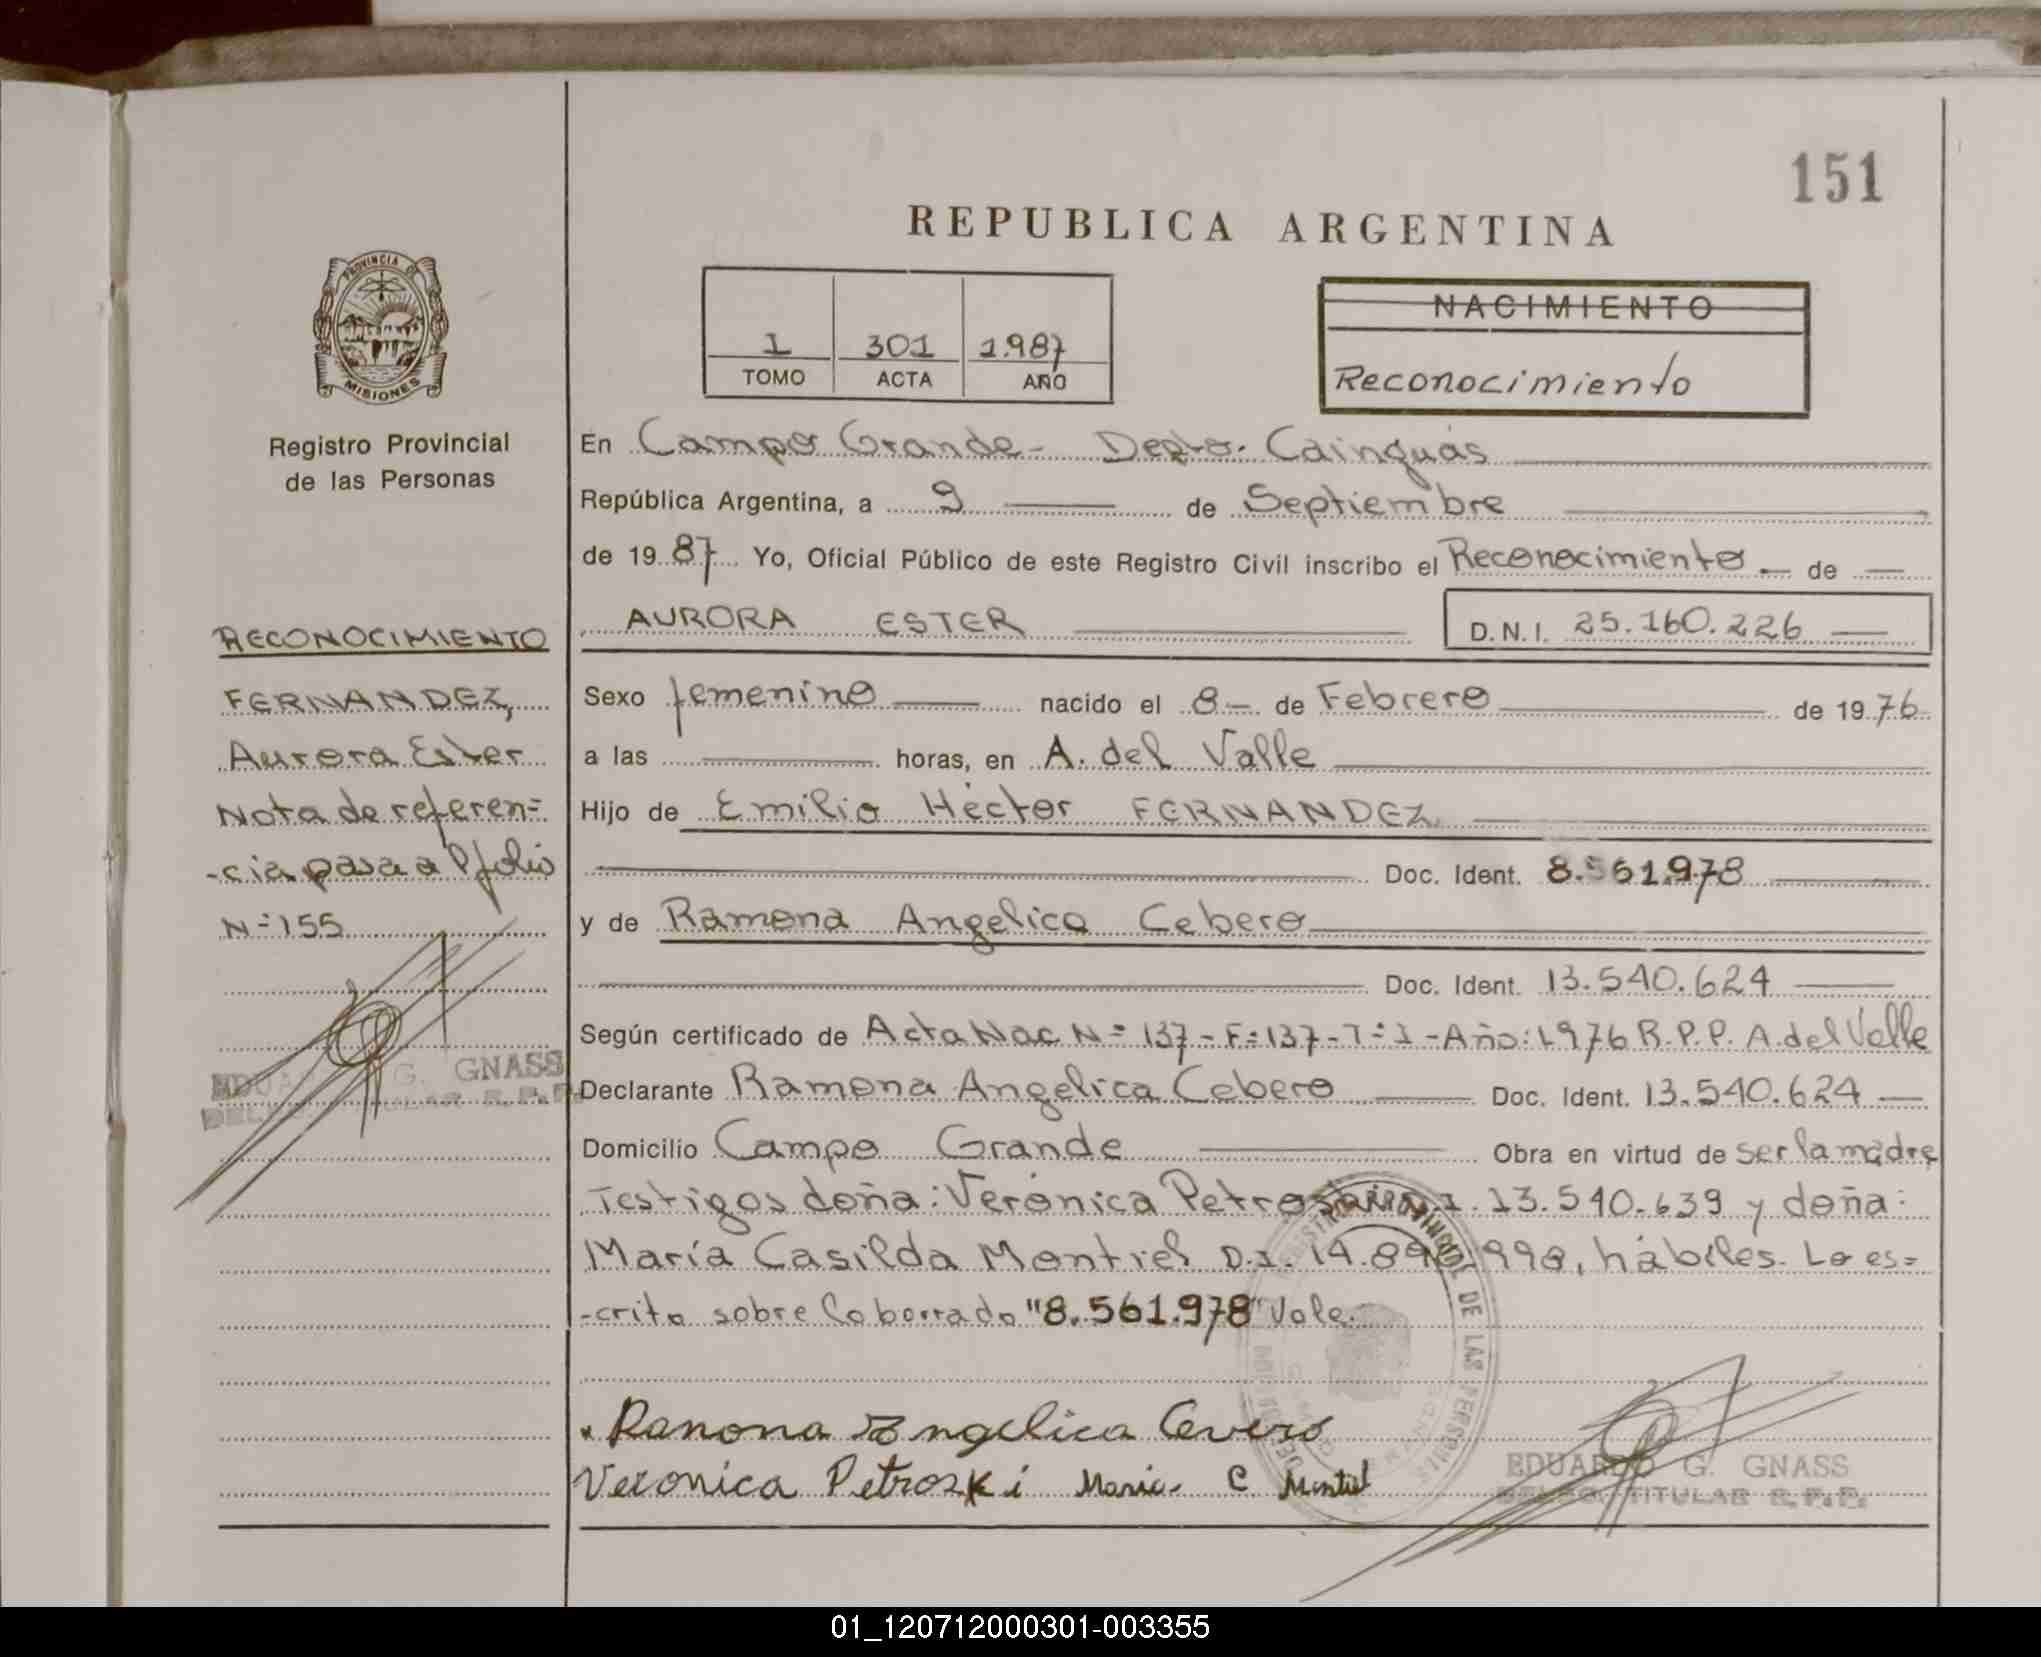 151
REPUBLICA ARGENTINA
PROVINCIA DE
MISIONES
Registro Provincial
de las Personas
1 301 1.987
TOMO ACTA AÑO
NACIMIENTO
Reconocimiento
En Campo Grande - Depto. Cainguás
República Argentina, a 9 de Septiembre
de 19 87 Yo, Oficial Público de este Registro Civil inscribo el Reconocimiento - de
AURORA ESTER D.N.I. 25.160.226
Sexo femenino nacido el 8 - de Febrero de 19 76
a las horas, en A. del Valle
Hijo de Emilio Héctor FERNANDEZ
Doc. Ident. 8.561.978
y de Ramona Angelica Cebero
Doc. Ident. 13.540.624
Según certificado de Acta Nac N= 137 - F=137 - T=1 - Año: 1976 R.P.P. A. del Valle
Declarante Ramona Angelica Cebero Doc. Ident. 13.540.624
Domicilio Campo Grande Obra en virtud de ser la madre
Testigos doña: Verónica Petroski 13.540.639 y doña:
María Casilda Montiel D.I. 14.89 998, hábiles. Lo es=
-crito sobre lo borrado "8.561.978" Vale.
Ramona Angelica Cevero
Veronica Petroski Maria C Montiel
EDUARDO G. GNASS
DELEG. TITULAR R.P.P.
RECONOCIMIENTO
FERNANDEZ,
Aurora Ester
Nota de referen=
-cia pasa a folio
N=155
EDUA G. GNASS
DEL TULAR R.P.P.
DE LAS PERSONAS
01_120712000301-003355